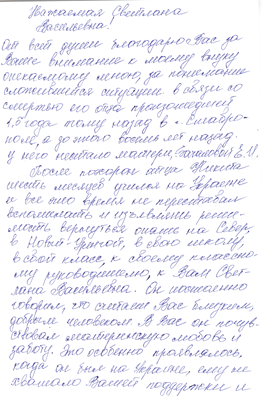 Уважаемая Светлана
Васильевна!
От всей души благодарю Вас за
Ваше внимание к моему внуку
опекаемому мною, за понимание
сложившейся ситуации в связи со
смертью его отца произошедшей
1,5 года тому назад в г. Ставро-
поле, а до этого восемь лет назад
у него не стало матери,
После похорон отца Никита
шесть месяцев учился на Украине
и все это время не переставал
вспоминать и изъявлять
вернуться опять на Север,
в Новый Уренгой, в свою школу,
в свой класс, к своему классно-
му руководителю, к Вам Свет-
лана Васильевна. Он постоянно
говорил, что считает Вас близким,
добрым человеком. В Вас он почув-
ствовал материнскую любовь и
заботу. Это особенно проявлялось
когда он был на Украине, ему не
хватало Вашей поддержки и